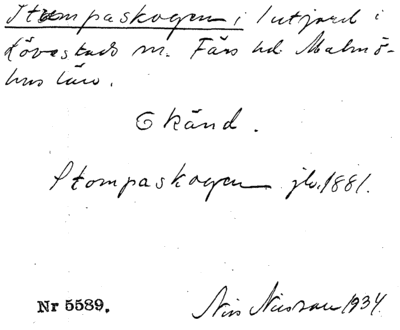 Stompaskogen i lutjord i
Lövestads sn. Färs hd. Malmö-
hus län.
Okänd.
Stompaskogen jb. 1881.
Nr 5589.
1934.